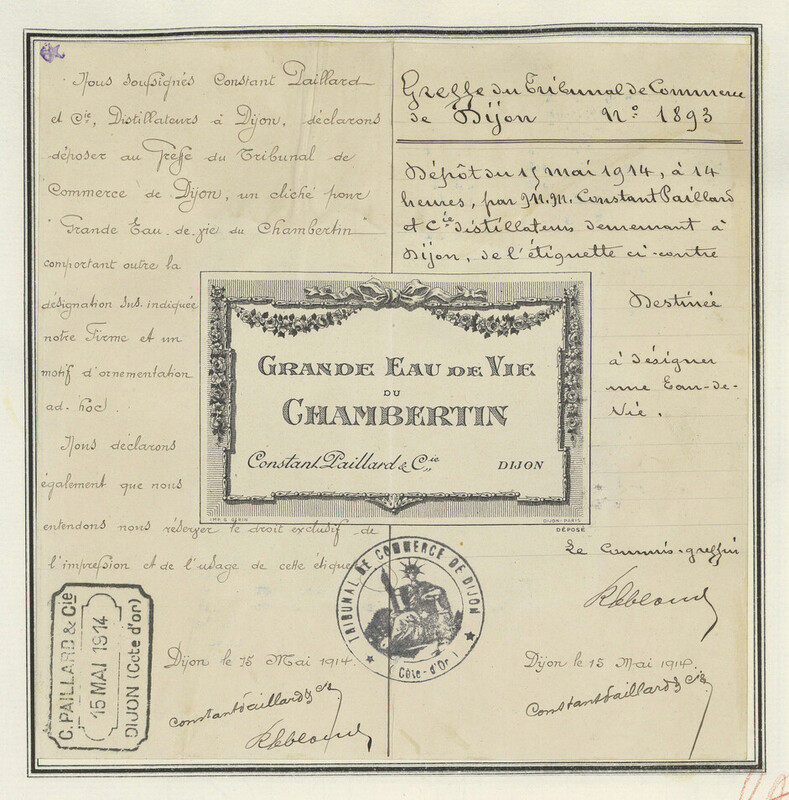 Nous soussignés Constant Paillard
et Cie, Distillateurs à Dijon, déclarons
déposer au Greffe du Tribunal de
Commerce de Dijon, un cliché pour
Grande Eau-de-vie du Chambertin
comportant outre la
désignation sus. indiquée
notre Firme et un
motif d'ornementation
ad. hoc.
Nous déclarons
également que nous
entendons nous réserver le droit exclusif de
l'impression et de l'usage de cette étique
C. PAILLARD & Cie
15 MAI 1914
DIJON (Cote d'or)
Dijon le 15 Mai 1914.
Constant Paillard & Cie
GRANDE EAU DE VIE
DU
CHAMBERTIN
Constant Paillard & Cie
DIJON
DIJON-PARIS
DÉPOSÉ
TRIBUNAL DE COMMERCE DE DIJON
(Côte-d'Or)
Greffe du Tribunal de Commerce
de Dijon No. 1893
Dépôt du 15 mai 1914, à 14
heures, par M.M. Constant Paillard
et Cie distillateurs demeurant à
Dijon, de l'étiquette ci-contre
Destinée
à désigner
une Eau-de-
Vie.
Le Commis-greffier
Dijon le 15 Mai 1914.
Constant Paillard & Cie